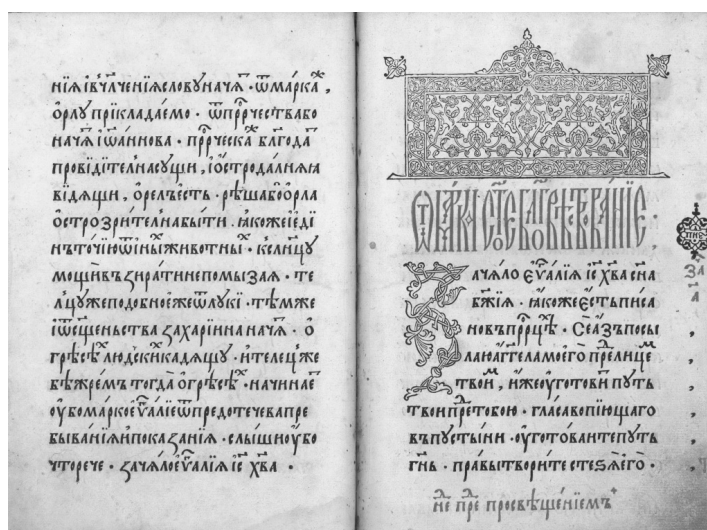 нїѧ івч̾лченїѧ словꙋ начѧ̑ · ѿ марка̑,
ѻрлꙋ прїкладаемо · ѿ прⷪ҇рчества бо
начѧ̑ іѡаннова · прⷪ҇рческа̑ блг҃ода̑
провідітел на сꙋщи, і ѻстро далнѧꙗ
відѧщи, ѻрелъ есть · рѣша бо ѻрла
ѻстрозрителна быти · ꙗкоже і еді
нъ точїю ѿ іны̑ животны̑ · к слн҃цꙋ
мощи въꙁирати непомыꙁаѧ · те
лцꙋже подобное еже ѿ лꙋкі · тѣмже
і ѿ сщ҃еньства ꙁахарїина начѧ̑ · ѻ
грѣсѣ̑ людски̑ кадѧщꙋ · и телецже
вѣ жрем ъ тогда ѻ грѣсѣ̑ · начинае̑
ꙋбо марко еѵⷢ҇алїе ѿ предотечева пре
быванїѧ и покаꙁанїѧ · слыши ꙋбо
что рече · ꙁачѧло еѵⷢ҇алїѧ іс҃ хв҃а ·
ѿ марка ст҃ое бл҃говѣствованїе ·
ꙁачѧло еѵⷢ҇алїѧ іс҃ хв҃а сн҃а
бж҃їѧ · ꙗкоже есть писа
но въ прⷪ҇рцѣ̑ · Се аꙁъ посы
лаю агг҃ела моего пре̑ лице̑
твои̑, иже ꙋготови̑ пꙋть
твои пре̑ тобою · глас вопїющаго
въ пꙋстыни · ꙋготоваите пꙋть
гн҃ь · правы творите стеѕѧ его ·
не̑ пре̑ просвѣщенїемъ
ꙁа
а҃